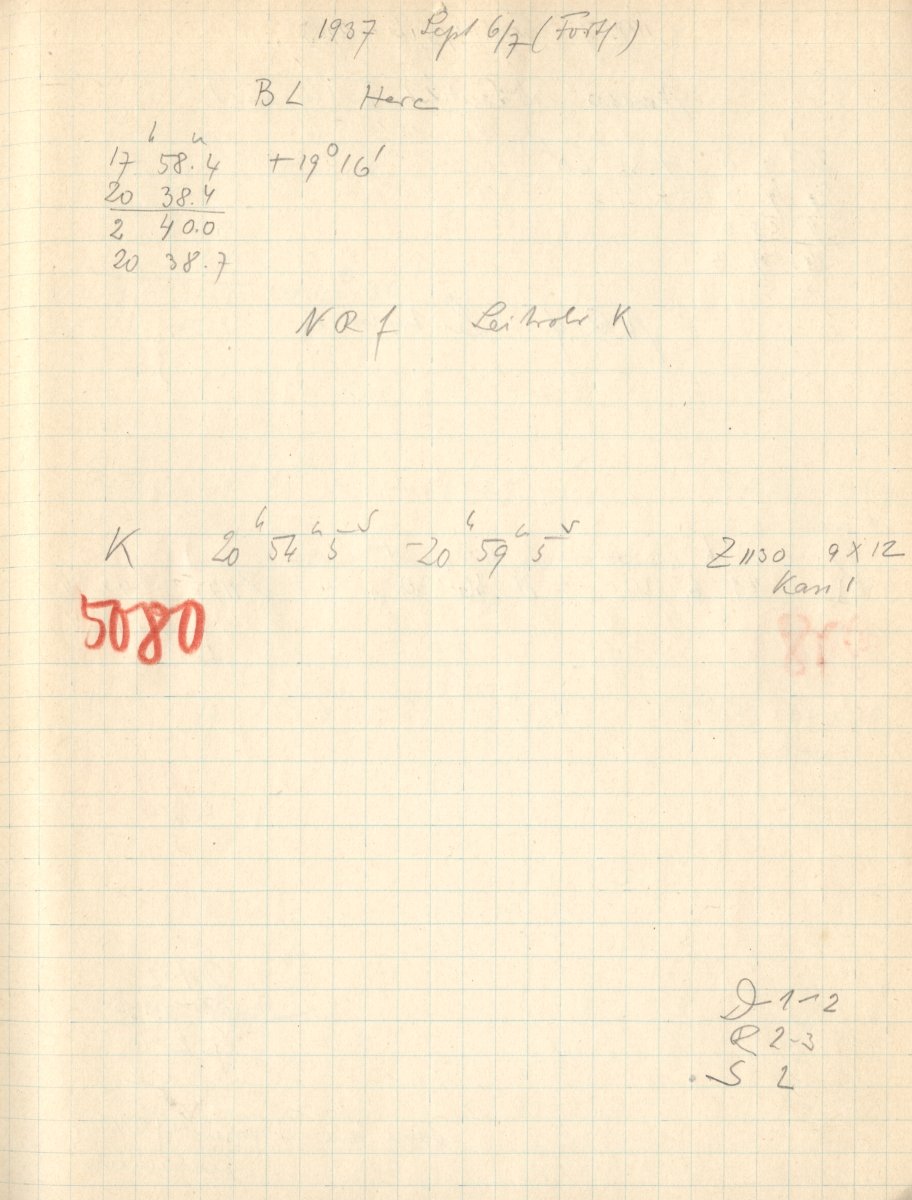 1937 Sept 6/7 (Forts.)
BL Herc
17ʰ 58.4ᵐ +19°16'
20 38.4
2 40.0
20 38.7
NRf Leitrohr K
K 20ʰ54ᵐ5ˢ -20ʰ59ᵐ5ˢ Z1130 9x12
Kass 1
5080
D 1-2
R 2-3
S 2